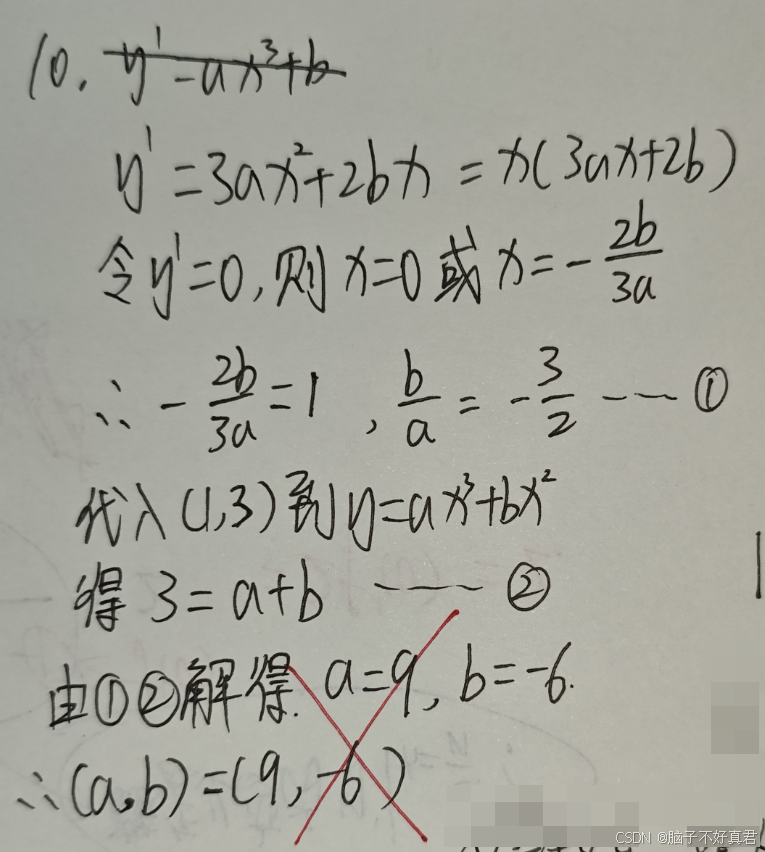 10. y'=ax³+b
y'=3ax²+2bx=x(3ax+2b)
令y'=0,则x=0或x=-2b/3a
∴-2b/3a=1,b/a=-3/2 ---- ①
代入(1,3)到y=ax³+bx²
得3=a+b ---- ②
由①②解得.a=9,b=-6.
∴(a,b)=(9,-6)
CSDN @脑子不好真君